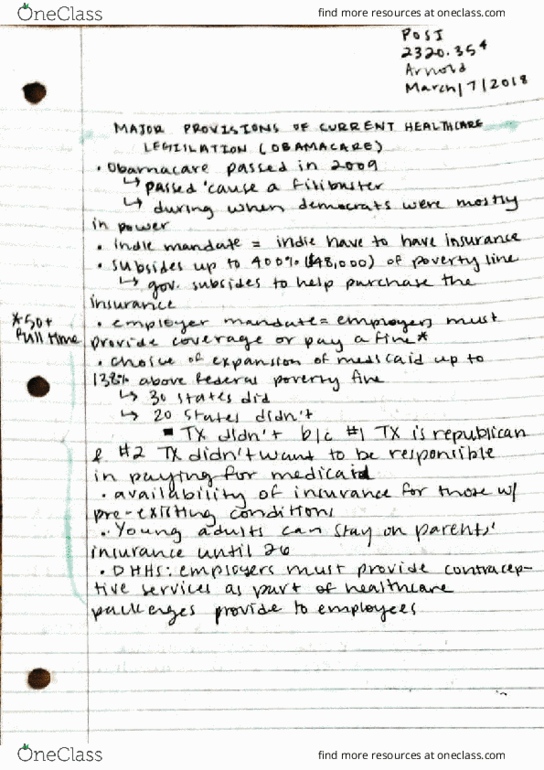 OneClass
find more resources at oneclass.com
POSI
2320.354
Arnold
March/7/2018
MAJOR PROVISIONS OF CURRENT HEALTHCARE
LEGISLATION (OBAMACARE)
• Obamacare passed in 2009
↳ passed 'cause a filibuster
↳ during when democrats were mostly
in power
• indie mandate = indie have to have insurance
• subsides up to 400% ($48,000) of poverty line
↳ gov. subsides to help purchase the
insurance
*50+
full time
• employer mandate = employers must
provide coverage or pay a fine*
• choice of expansion of medicaid up to
138% above federal poverty line
↳ 30 states did
↳ 20 states didn't
▪ TX didn't b/c #1 TX is republican
& #2 TX didn't want to be responsible
in paying for medicaid
• availability of insurance for those w/
pre-existing conditions
• Young adults can stay on parents'
insurance until 26
• DHHS: employers must provide contracep-
tive services as part of healthcare
packerges provide to employees
OneClass
find more resources at oneclass.com